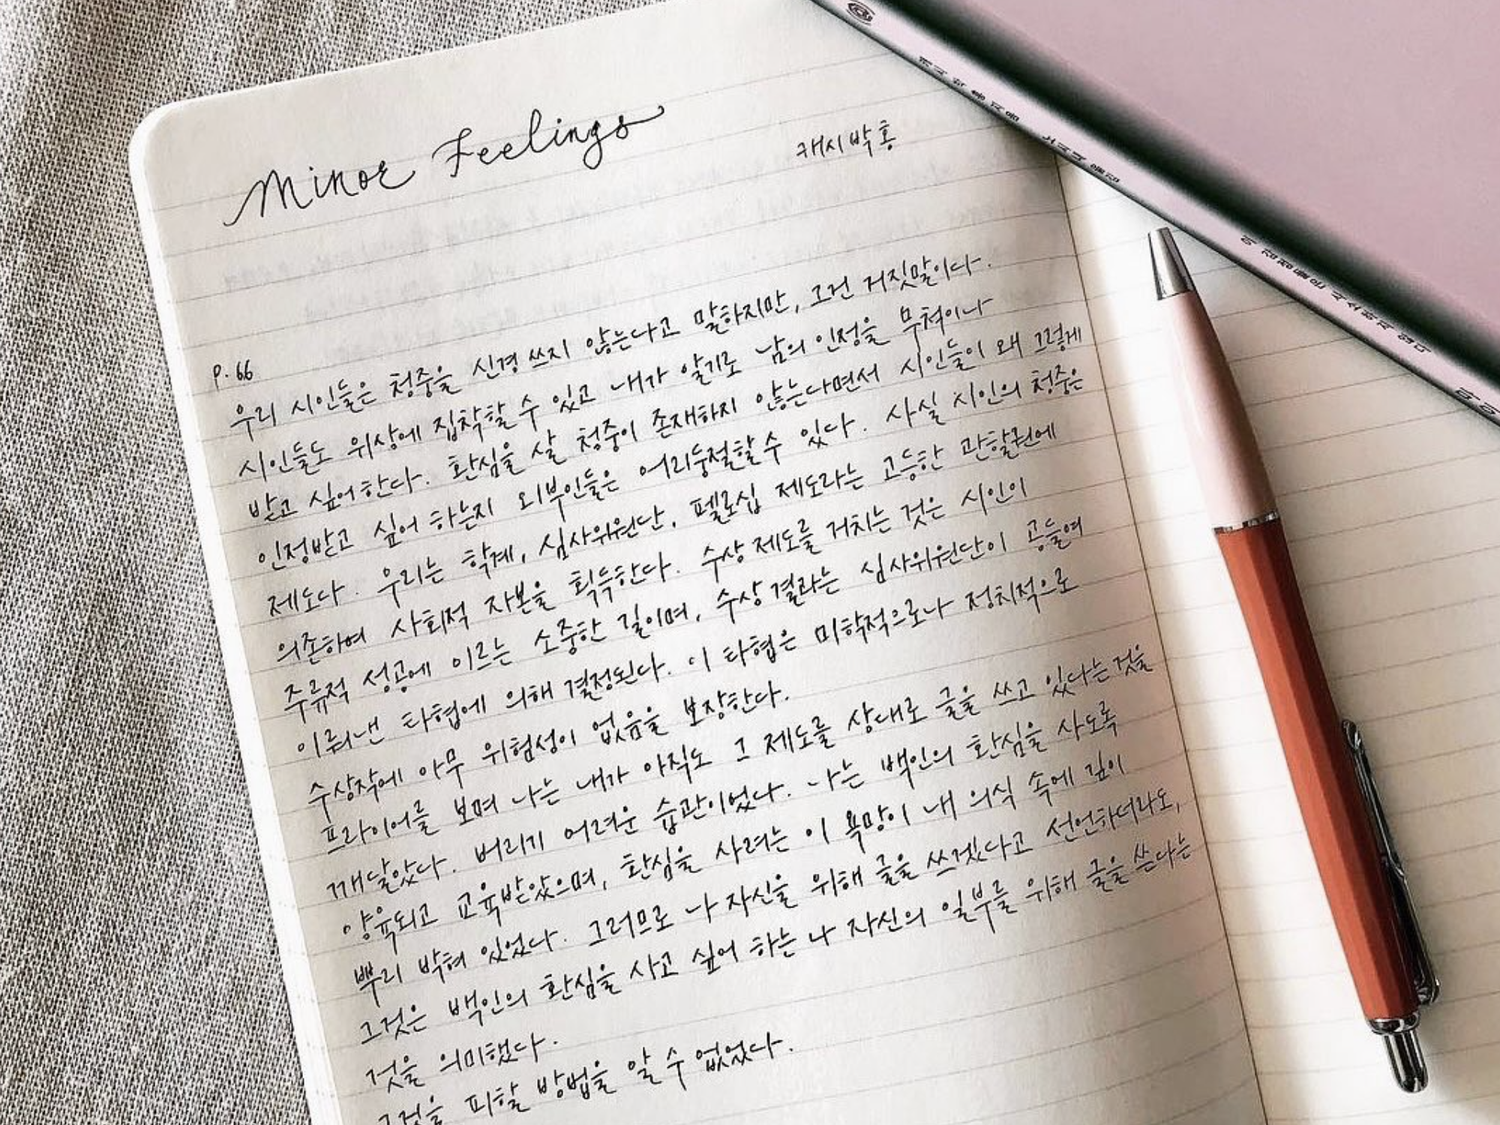 Minor Feelings
캐시 박 홍
P. 66
우리 시인들은 청중을 신경 쓰지 않는다고 말하지만, 그건 거짓말이다.
시인들도 위상에 집착할 수 있고 내가 알기로 남의 인정을 무척이나
받고 싶어한다. 환심을 살 청중이 존재하지 않는다면서 시인들이 왜 그렇게
인정받고 싶어 하는지 외부인들은 어리둥절할 수 있다. 사실 시인의 청중은
제도다. 우리는 학계, 심사위원단, 펠로십 제도라는 고등한 관할권에
의존하여 사회적 자본을 획득한다. 수상 제도를 거치는 것은 시인이
주류적 성공에 이르는 소중한 길이며, 수상 결과는 심사위원단이 공들여
이뤄낸 타협에 의해 결정된다. 이 타협은 미학적으로나 정치적으로
수상작에 아무 위험성이 없음을 보장한다.
프라이어를 보며 나는 내가 아직도 그 제도를 상대로 글을 쓰고 있다는 것을
깨달았다. 버리기 어려운 습관이었다. 나는 백인의 환심을 사도록
양육되고 교육받았으며, 환심을 사려는 이 욕망이 내 의식 속에 깊이
뿌리 박혀 있었다. 그러므로 나 자신을 위해 글을 쓰겠다고 선언하더라도,
그것은 백인의 환심을 사고 싶어 하는 나 자신의 일부를 위해 글을 쓴다는
것을 의미했다.
그것을 피할 방법을 알 수 없었다.
캐시 박 홍 지음 노시내 옮김
이 감정들은 사소하지 않다